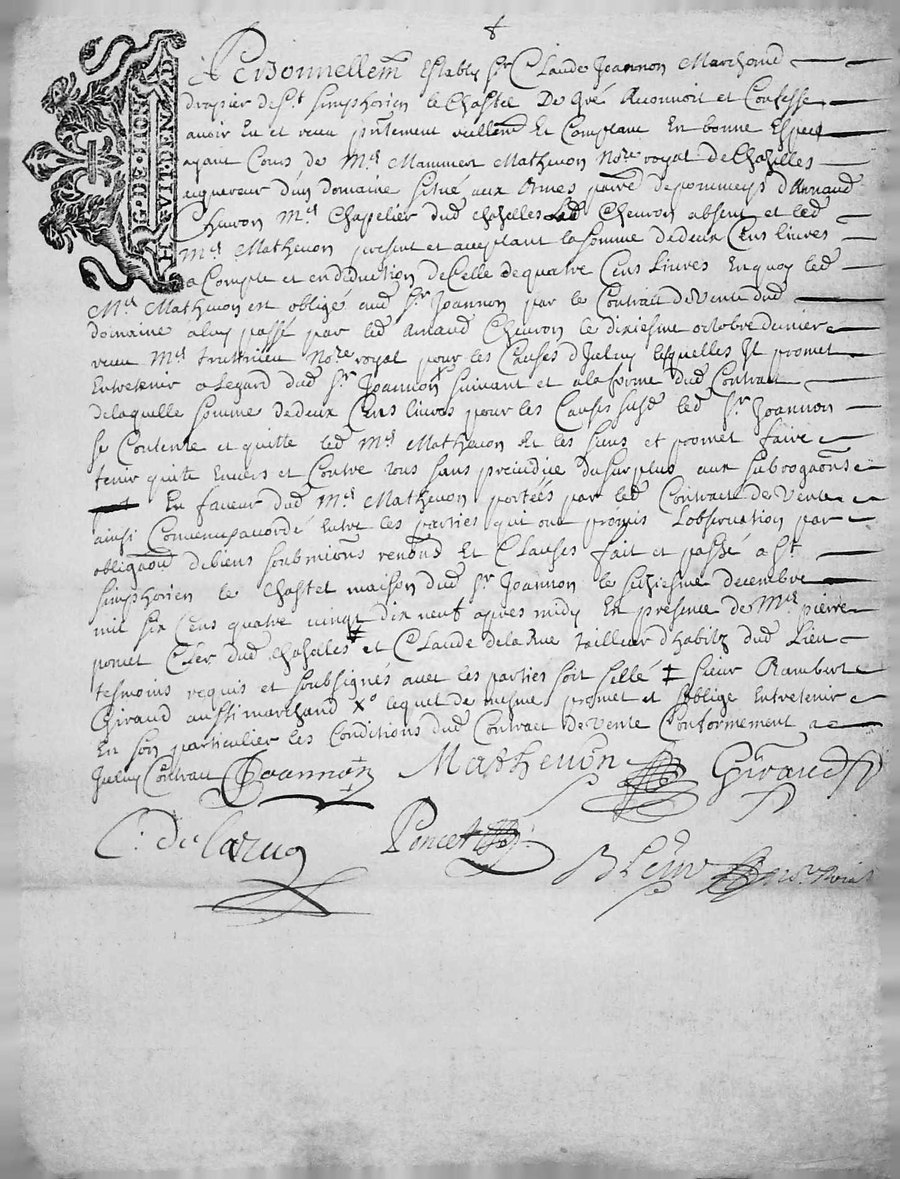 G. DE. LION
HVIT. DEN. 2. D
Personnellem Estably Sr Claude Joannon Marchand
drapier de St Simphorien le Chastel De gré a connoit et Confesse
avoir Eu et receu pntement reellem Et Comptant En bonne Espece
ayant Cours de Mre Mammert Mathevon Nore royal de Chaselles
aquereur d'un domaine situé aux parre de pommeys d'Arnaud
Chevron Mre Chapelier dud chaselles led Chevron absent et led
Mre Mathevon present et acceptant la somme de deux Cens livres
a Compte et en deduction de Celle de quatre Cens Livres En quoy led
Mre Mathevon est obligé aud Sr Joannon par le Contrait de Vente dud
domaine a luy passé par led Arnaud Chevron le dixiesme octobre dernier
receu Mre Nore royal pour les Causes d'Iceluy lesquelles Il promet
Entretenir a Legard dud Sr Joannon suivant et a la forme dud Contrait
de laquelle somme de deux Cens livres pour les Causes susd led Sr Joannon
se Contente et quitte led Mre Mathevon Et les siens et promet faire
tenir quitte Envers et Contre tous sans preiudice du surplus aux subrogaons
En faveur dud Mre Mathevon portées par led Contract de Vente
ainsi Convenu accordé Entre les parties qui ont promis Lobservation par
obligaon de biens soubmions renons Et Clauses fait et passé a St
Simphorien le Chastel maison dud Sr Joannon le seziesme decembre
mil six Cens quatre vingt dix neuf apres midy En presence de Mre pierre
ponet Cler dud Chaselles et Claude de la Rue Tailleur d'habitz dud Lieu
tesmoins requis et soubsignés avec les parties soit sellé ‡ sieur Rambert
Giraud aussi marchand Xo lequel de mesme promet et oblige Entretenir
En son particulier les Conditions dud Contract de Vente Conformement a
Iceluy Contrait Joannon Mathevon Giraud
C. De Larue Poncet